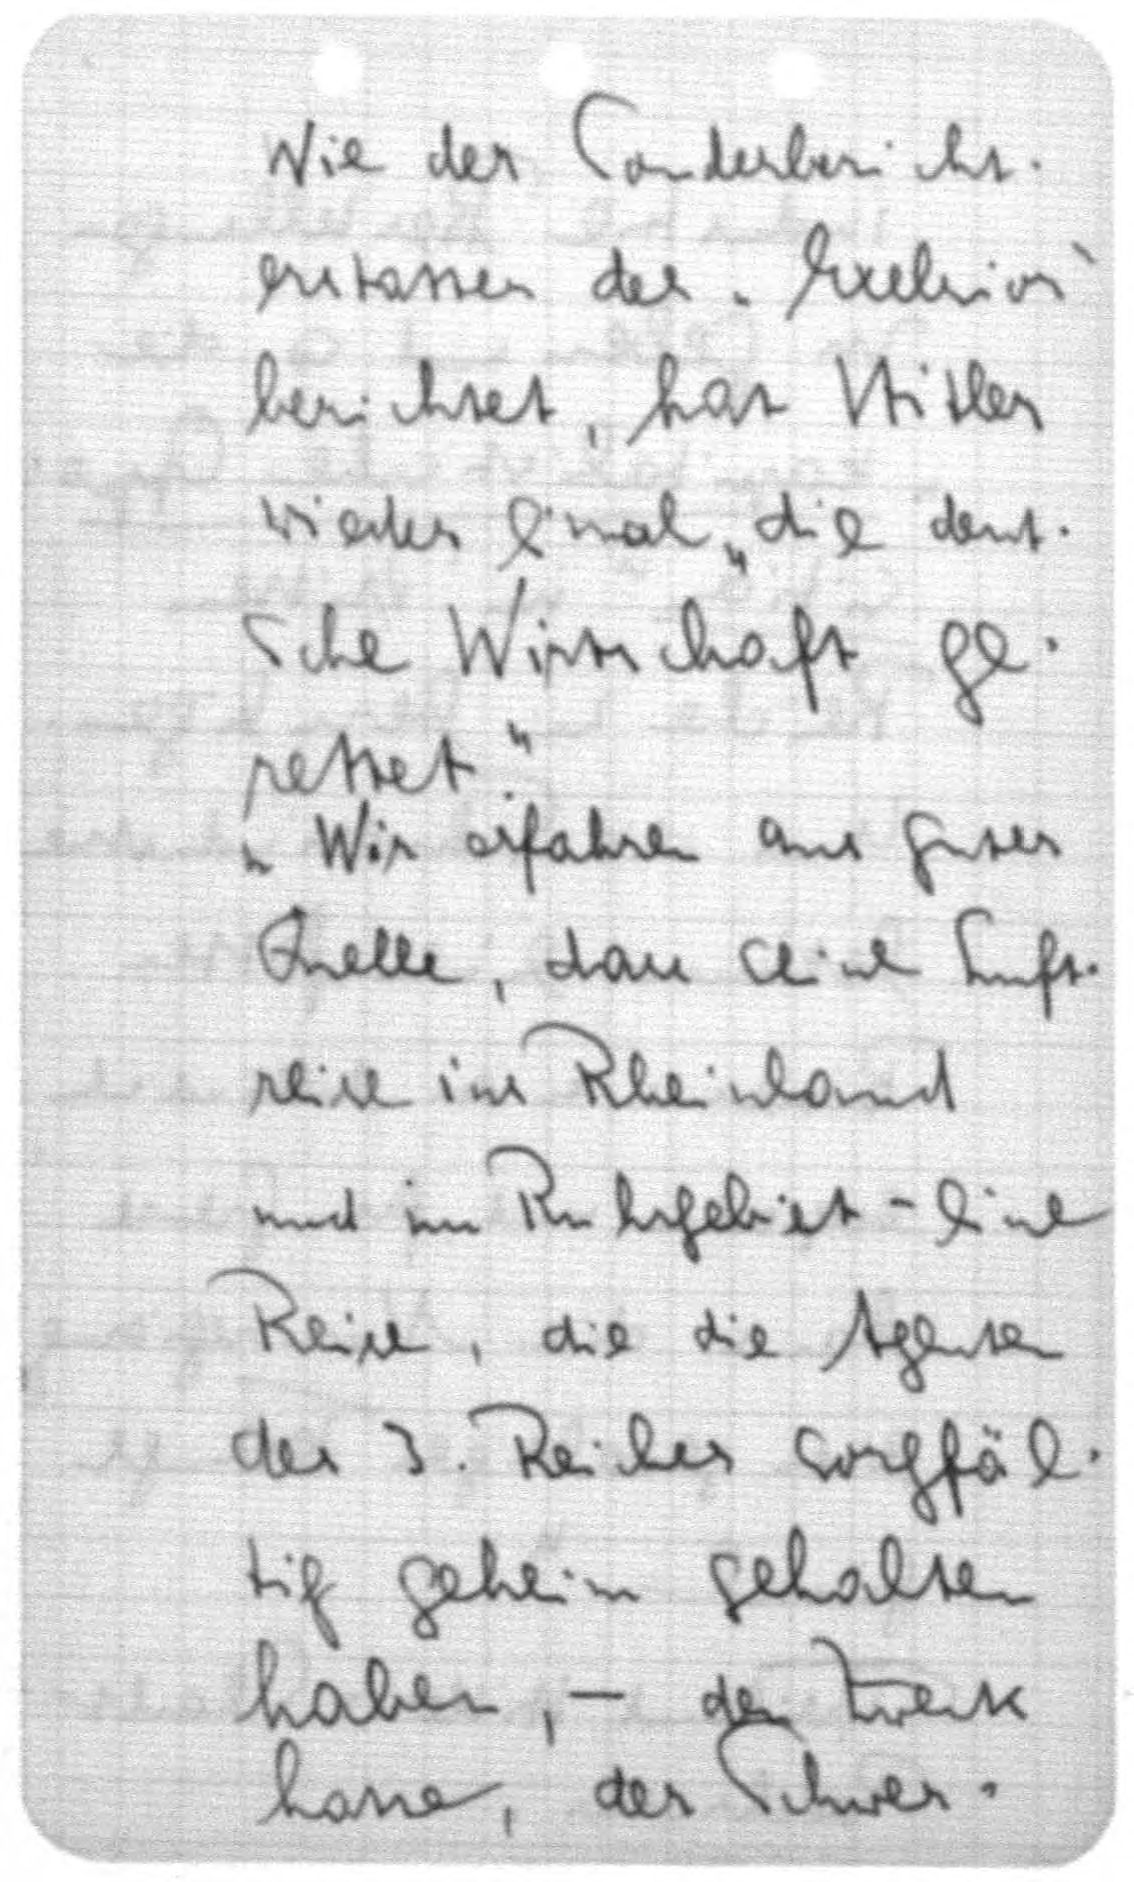 Wie der Sonderbericht-
erstatter des „Excelsior“
berichtet, hat Hitler
wieder einmal „die deut-
sche Wirtschaft ge-
rettet.“
„Wir erfahren aus guter
Quelle, dass seine Luft-
reise ins Rheinland
und im Ruhrgebiet – eine
Reise, die die Agenten
des 3. Reiches sorgfäl-
tig geheim gehalten
haben, – den Zweck
hatte, der Schwer-